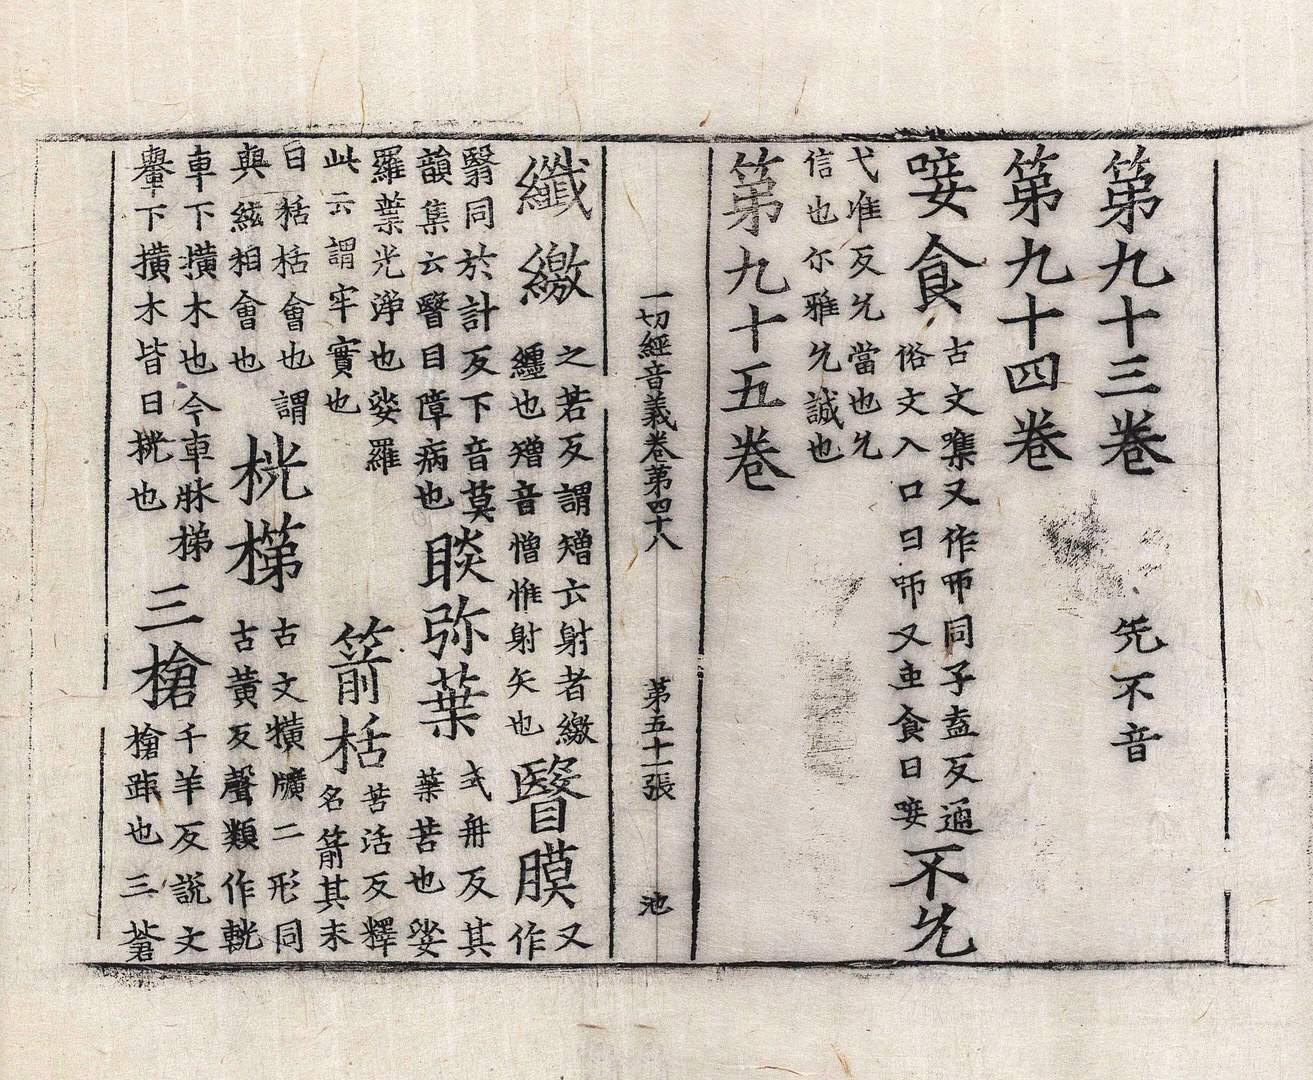 第九十三卷 先不音
第九十四卷
唼食 古文㗱又作咂同子盍反通俗文入口曰咂又虫食曰唼 不允
弋准反允當也允信也尒雅允誠也
第九十五卷
一切經音義卷第四十八 第五十一張 池
纖繳 之若反謂矰弋射者繳纏也矰音憎惟射矢也 瞖膜 又作
翳同於計反下音莫韻集云瞖目障病也 睒弥葉 式冉反其葉苦也娑
羅葉光淨也娑羅此云謂牢實也 箭栝 苦活反釋名箭其末
曰栝栝會也謂與絃相會也 桄梯 古文横㸙二形同古黃反聲類作輄
車下橫木也今車牀梯轝下橫木皆曰桄也 三槍 千羊反説文槍距也三蒼